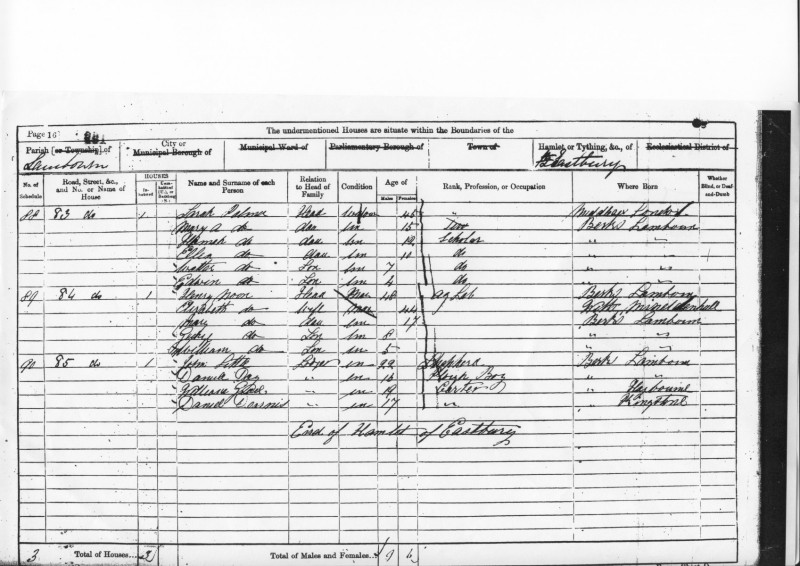 Page 16
The undermentioned Houses are situate within the Boundaries of the
Parish [or Township] of City or Municipal Borough of Municipal Ward of Parliamentary Borough of Town of Hamlet, or Tything, &c., of Ecclesiastical District of
Lambourn Eastbury
No. of Schedule Road, Street, &c., and No. or Name of House HOUSES Name and Surname of each Person Relation to Head of Family Condition Age of Males Females Rank, Profession, or Occupation Where Born Whether Blind, or Deaf-and-Dumb
88 83 do 1 Sarah Palmer Head Widow 45 " Middlesex London
Mary A do dau un 15 Berks Lambourn
Hannah do dau un 12 Scholar " "
Eliza do dau un 10 do " "
Walter do Son un 7 do " "
Edwin do Son un 4 do " "
89 84 do 1 Henry Moon Head Mar 48 Ag Lab Berks Lambourn
Elizabeth do Wife 44 Wilts
Mary do dau un 17 Berks Lambourn
do Son un 8 " "
William do Son un 5 " "
90 85 do 1 John Lodger un 22 Shepherd Berks Lambourn
Daniel Day " un Plough Boy " "
" un 19 Carter "
Daniel " un 17 " " Kingstone
End of Hamlet of Eastbury
3 Total of Houses... 2 Total of Males and Females... 9 6